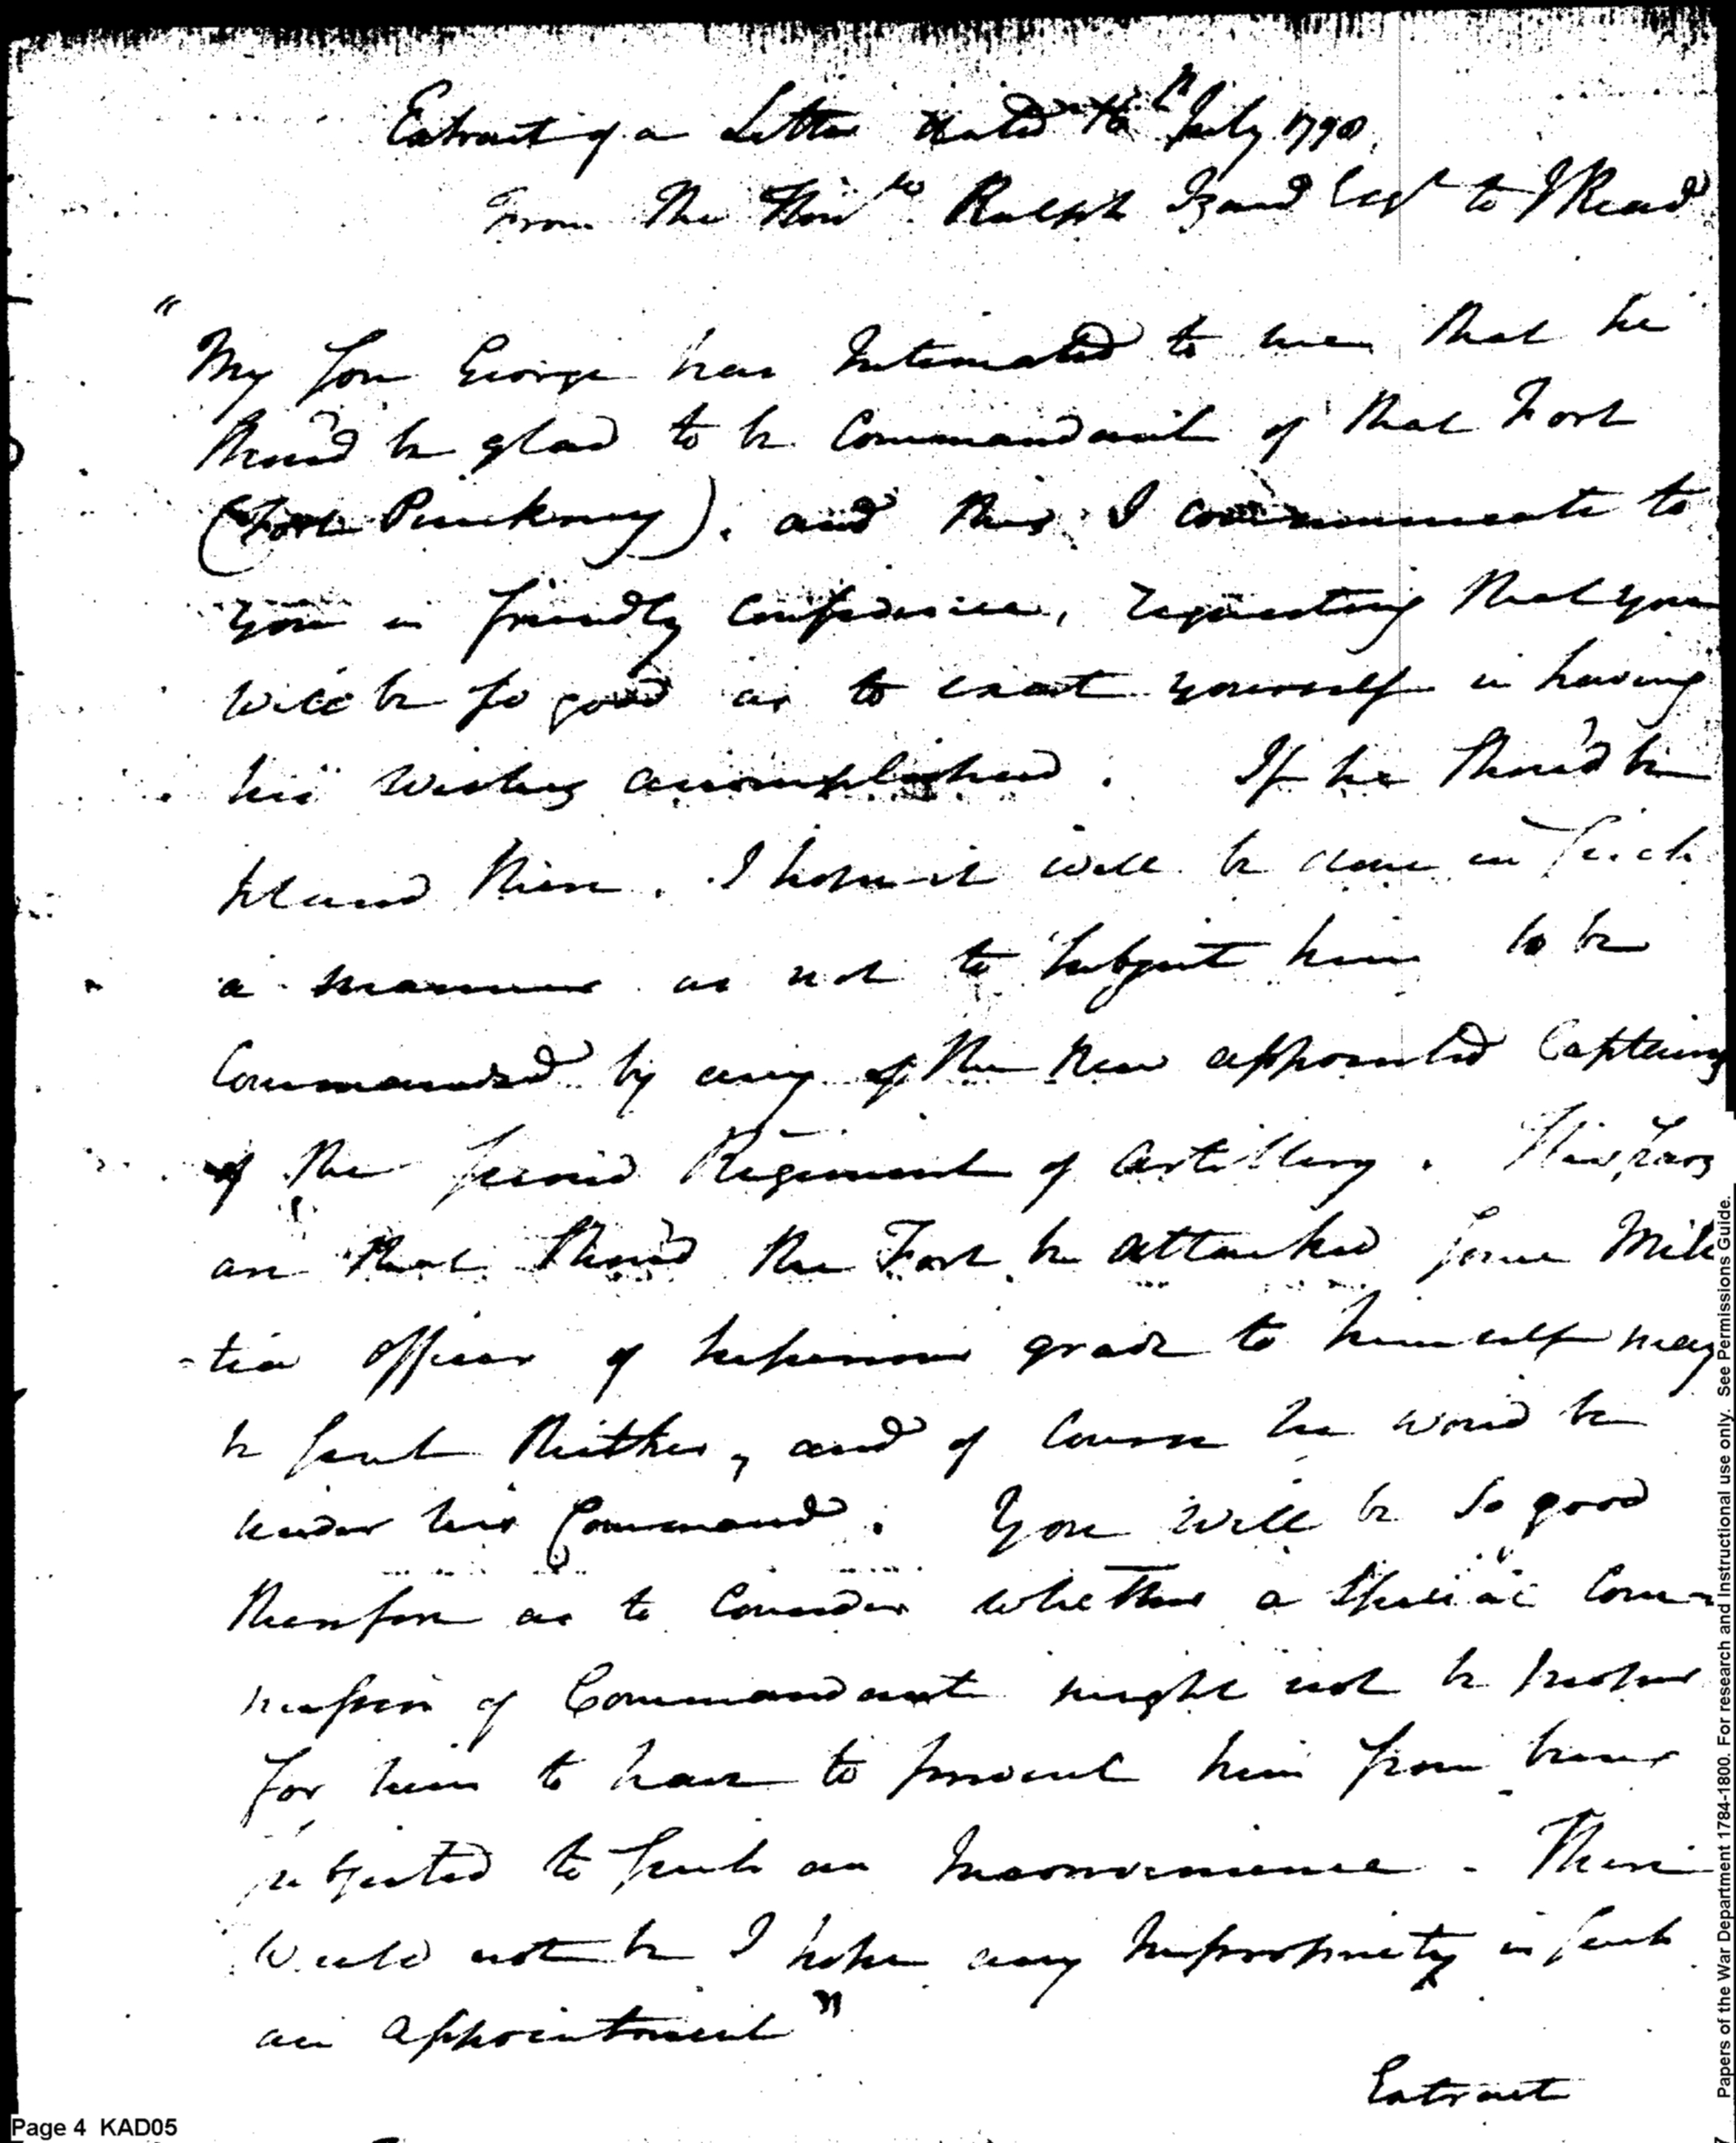 Extract of a Letter dated 16th July 1798,
From The Honble Ralph Izard Esqr to J Read
"
My Son George has Intimated to me that he
Shou'd be glad to be Commandant of that Fort
(Fort Pinckney), and this I communicate to
you in friendly Confidence, requesting that you
will be so good as to exert yourself in having
his Wishes accomplished. If he Shou'd be
placed there, I hope it will be done in Such
a manner as not to Subject him to be
Commanded by any of the New appointed Captains
of the Second Regiment of Artillery.
an that Shou'd the Fort be attacked Some Mili
-tia officer of Superiour grade to himself may
be sent thither, and of Course he wou'd be
under his Command. You will be So good
therefore as to Consider whether a Special Com-
mission of Commandant might not be proper
for him to have to prevent him from being
subjected to such an Inconvenience - There
Would not be I hope any Impropriety in such
an appointment"
Extract
Page 4 KAD05
Papers of the War Department 1784-1800. For research and instructional use only. See Permissions Guide.